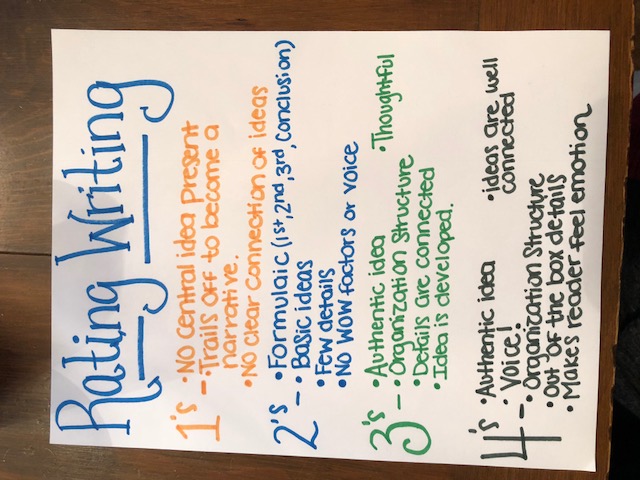 Rating Writing
1's - • NO central idea present
• Trails off to become a
narrative.
• NO clear connection of ideas
2's - • Formulaic (1st, 2nd, 3rd, conclusion)
• Basic ideas
• Few details
• NO WOW factors or voice
3's - • Authentic idea
• Organization Structure
• Details are connected
• Idea is developed.
• Thoughtful
4's - • Authentic idea
• Voice!
• Organization Structure
• Out of the box details
• Makes reader feel emotion
• ideas are well
connected